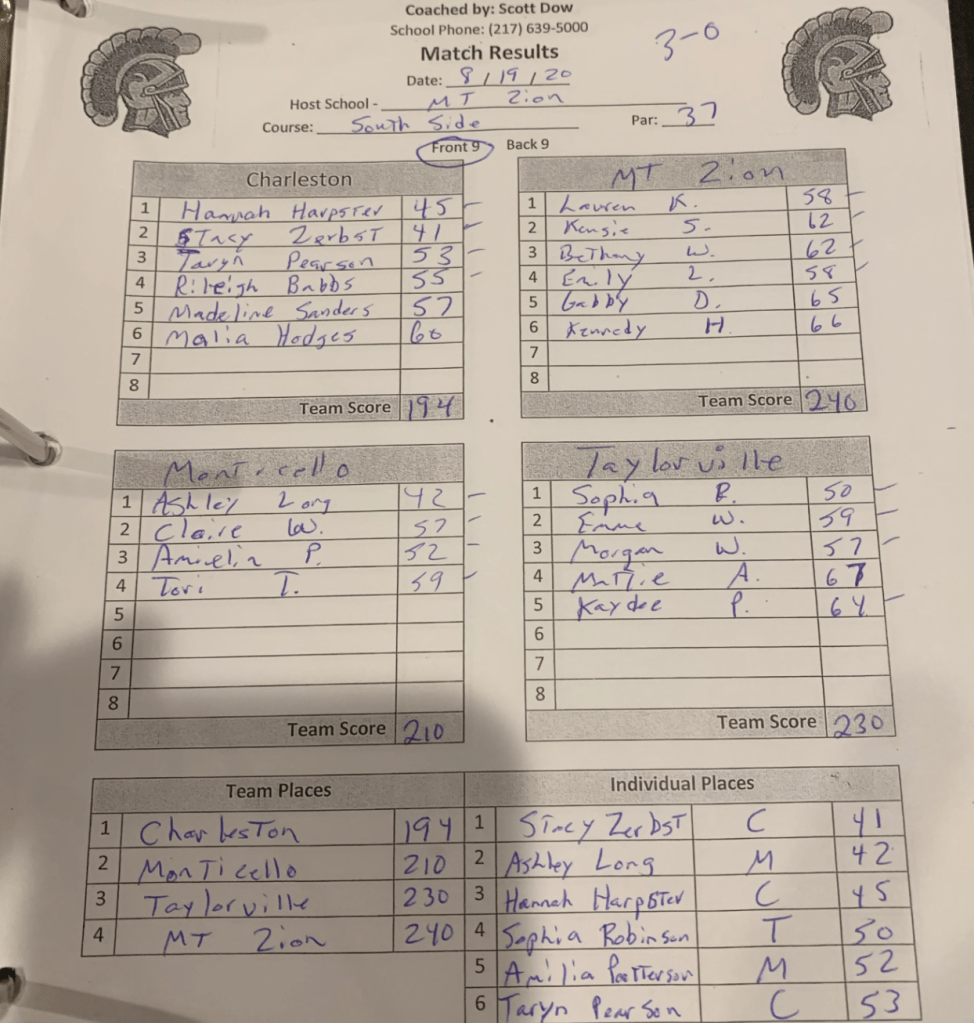 Coached by: Scott Dow
School Phone: (217) 639-5000
3-0
Match Results
Date: 8/19/20
Host School - MT Zion
Course: South Side Par: 37
Front 9 Back 9
Charleston
1 Hannah Harpster 45
2 Stacy Zerbst 41
3 Taryn Pearson 53
4 Rileigh Babbs 55
5 Madeline Sanders 57
6 Malia Hodges 60
7
8
Team Score 194
MT Zion
1 Lauren K. 58
2 Kensie S. 62
3 Bethany W. 62
4 Emily L. 58
5 Gabby D. 65
6 Kennedy H 66
7
8
Team Score 240
Monticello
1 Ashley Long 42
2 Claire W. 57
3 P. 52
4 Tori T. 59
5
6
7
8
Team Score 210
Taylorville
1 Sophia R. 50
2 Emme W. 59
3 Morgan W. 57
4 Mattie A. 67
5 Kaydee P. 64
6
7
8
Team Score 230
Team Places
1 Charleston 194
2 Monticello 210
3 Taylorville 230
4 MT Zion 240
Individual Places
1 Stacy Zerbst C 41
2 Ashley Long M 42
3 Hannah Harpster C 45
4 Sophia Robinson T 50
5 Amilia Patterson M 52
6 Taryn Pearson C 53